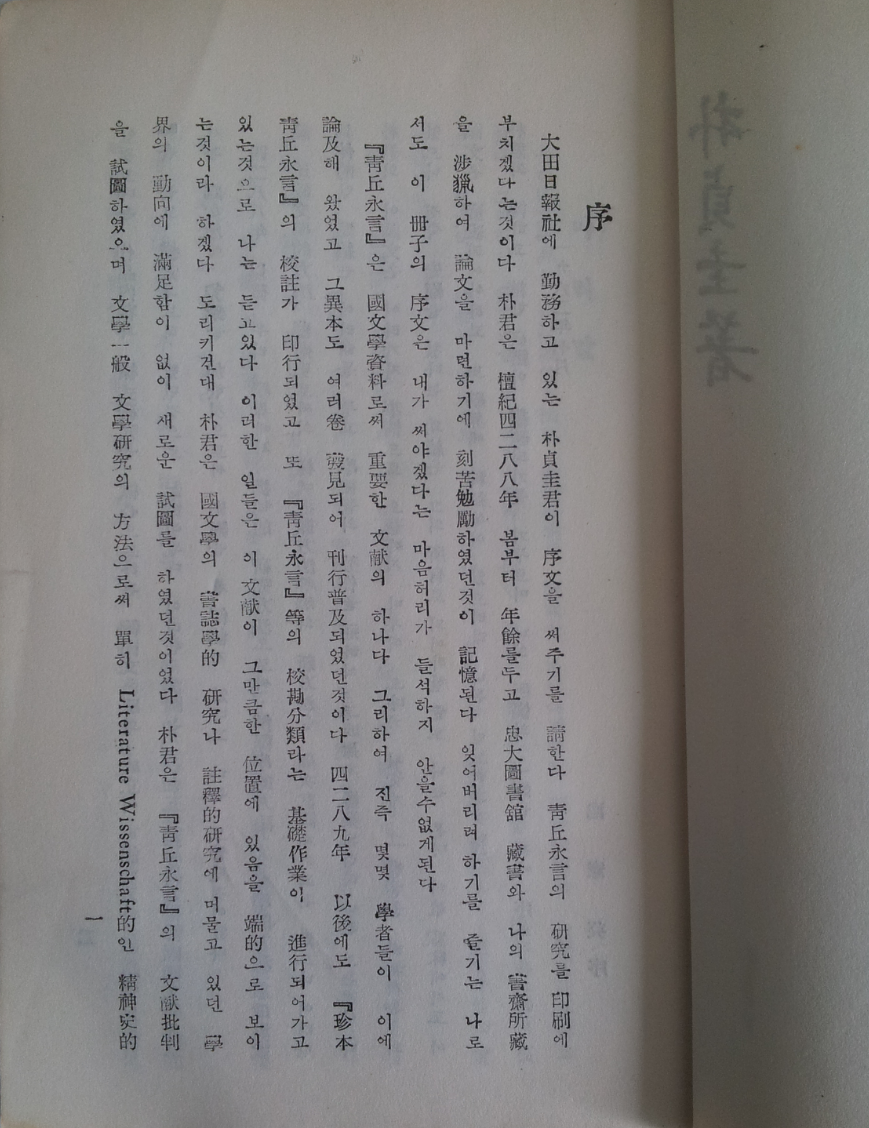 序
大田日報社에 勤務하고 있는 朴貞圭君이 序文을 써주기를 請한다 靑丘永言의 硏究를 印刷에
부치겠다는것이다 朴君은 檀紀四二八八年 봄부터 年餘를두고 忠大圖書舘 藏書와 나의 書齋所藏
을 涉獵하여 論文을 마련하기에 刻苦勉勵하였던것이 記憶된다 잊어버리려 하기를 즐기는 나로
서도 이 冊子의 序文은 내가 써야겠다는 마음허리가 들석하지 안을수없게된다
『靑丘永言』은 國文學資料로써 重要한 文献의 하나다 그리하여 진즉 몇몇 學者들이 이에
論及해 왔였고 그異本도 여러卷 發見되어 刊行普及되었던것이다 四二八九年 以後에도 『珍本
靑丘永言』의 校註가 印行되었고 또 『靑丘永言』等의 校勘分類라는 基礎作業이 進行되어가고
있는것으로 나는 듣고있다 이러한 일들은 이 文献이 그만큼한 位置에 있음을 端的으로 보이
는것이라 하겠다 도리키건대 朴君은 國文學의 書誌學的 硏究나 註釋的硏究에 머물고 있던 學
界의 動向에 滿足함이 없이 새로운 試圖를 하였던것이었다 朴君은 『靑丘永言』의 文献批判
을 試圖하였으며 文學一般 文學硏究의 方法으로써 單히 Literature Wissenschaft的인 精神史的
一